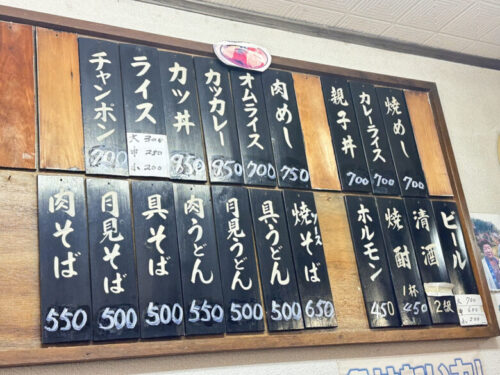 焼めし 700
カレーライス 700
親子丼 700
肉めし 750
オムライス 700
カツカレー 850
カツ丼 850
ライス
大 300
中 250
小 200
チャンポン
ビール
大 700
中 600
小 200
清酒 2級
焼酎 1杯 450
ホルモン 450
ソース焼そば 650
具うどん 500
月見うどん 500
肉うどん 550
具そば 500
月見そば 500
肉そば 550